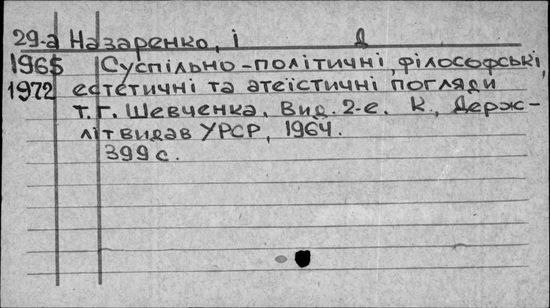 29-а Назаренко, І Д
1965 Суспільно-політичні, філософські,
1972 естетичні та атеїстичні погляди
Т.Г. Шевченка. Вид. 2-е. К., Держ-
літвидав УРСР, 1964.
399 с.